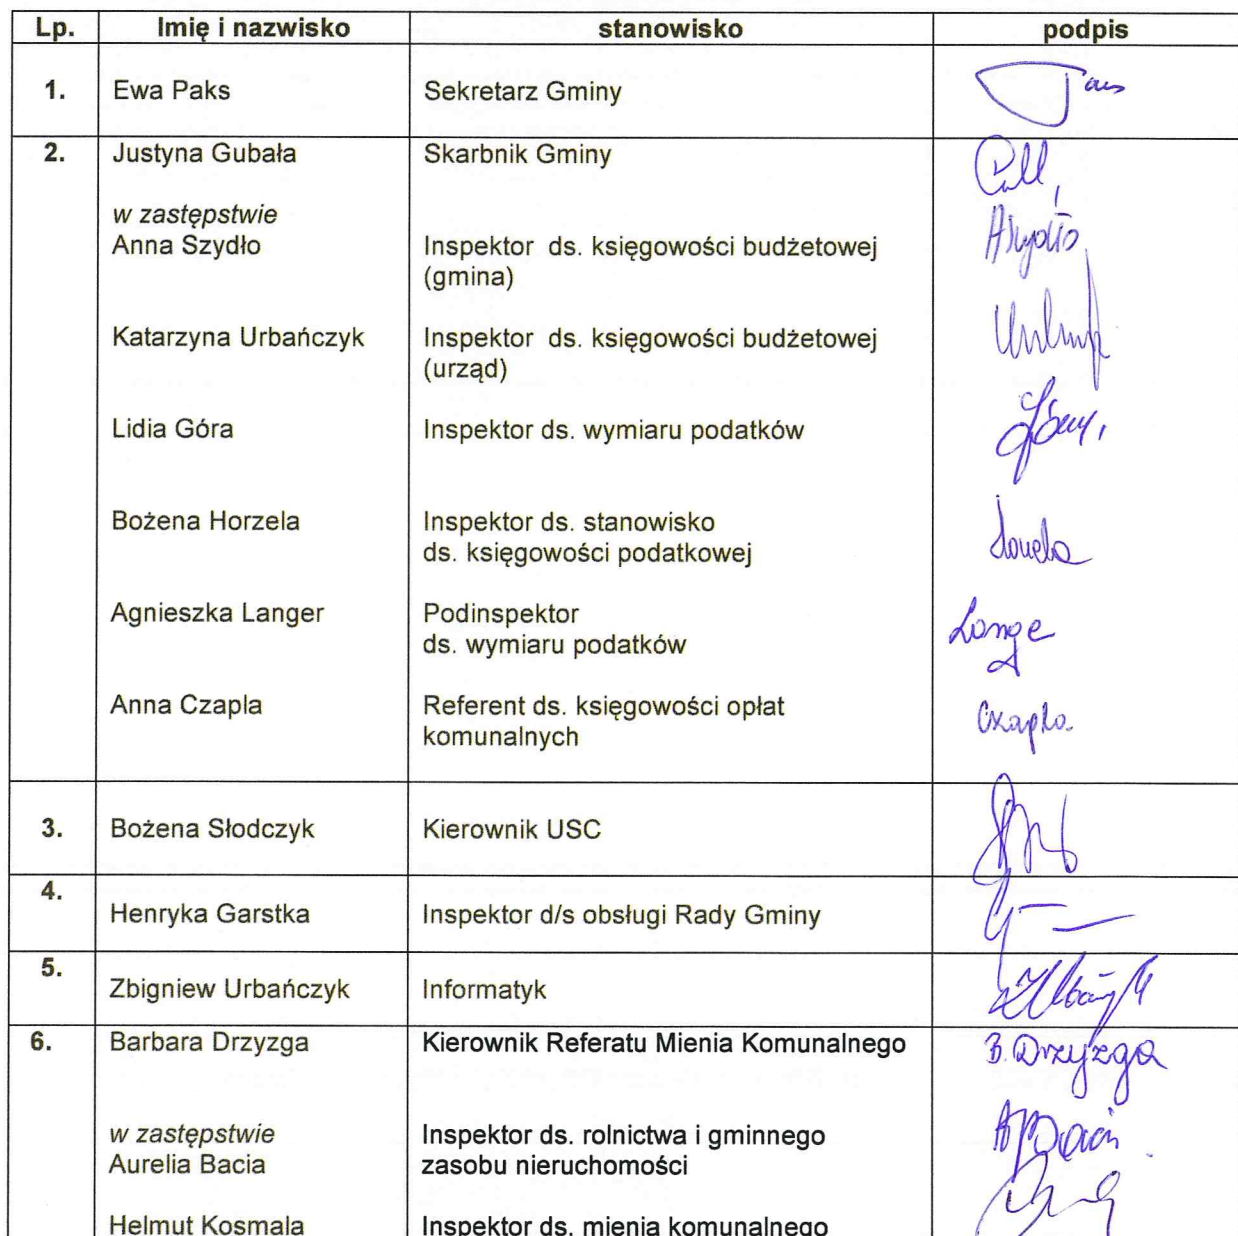 Lp. Imię i nazwisko stanowisko podpis
1. Ewa Paks Sekretarz Gminy
2. Justyna Gubała Skarbnik Gminy
w zastępstwie
Anna Szydło Inspektor ds. księgowości budżetowej ASzydło
(gmina)
Katarzyna Urbańczyk Inspektor ds. księgowości budżetowej
(urząd)
Lidia Góra Inspektor ds. wymiaru podatków
Bożena Horzela Inspektor ds. stanowisko
ds. księgowości podatkowej
Agnieszka Langer Podinspektor Langer
ds. wymiaru podatków
Anna Czapla Referent ds. księgowości opłat Czapla
komunalnych
3. Bożena Słodczyk Kierownik USC
4.
Henryka Garstka Inspektor d/s obsługi Rady Gminy
5.
Zbigniew Urbańczyk Informatyk
6. Barbara Drzyzga Kierownik Referatu Mienia Komunalnego B. Drzyzga
w zastępstwie Inspektor ds. rolnictwa i gminnego
Aurelia Bacia zasobu nieruchomości
Helmut Kosmala Inspektor ds. mienia komunalnego